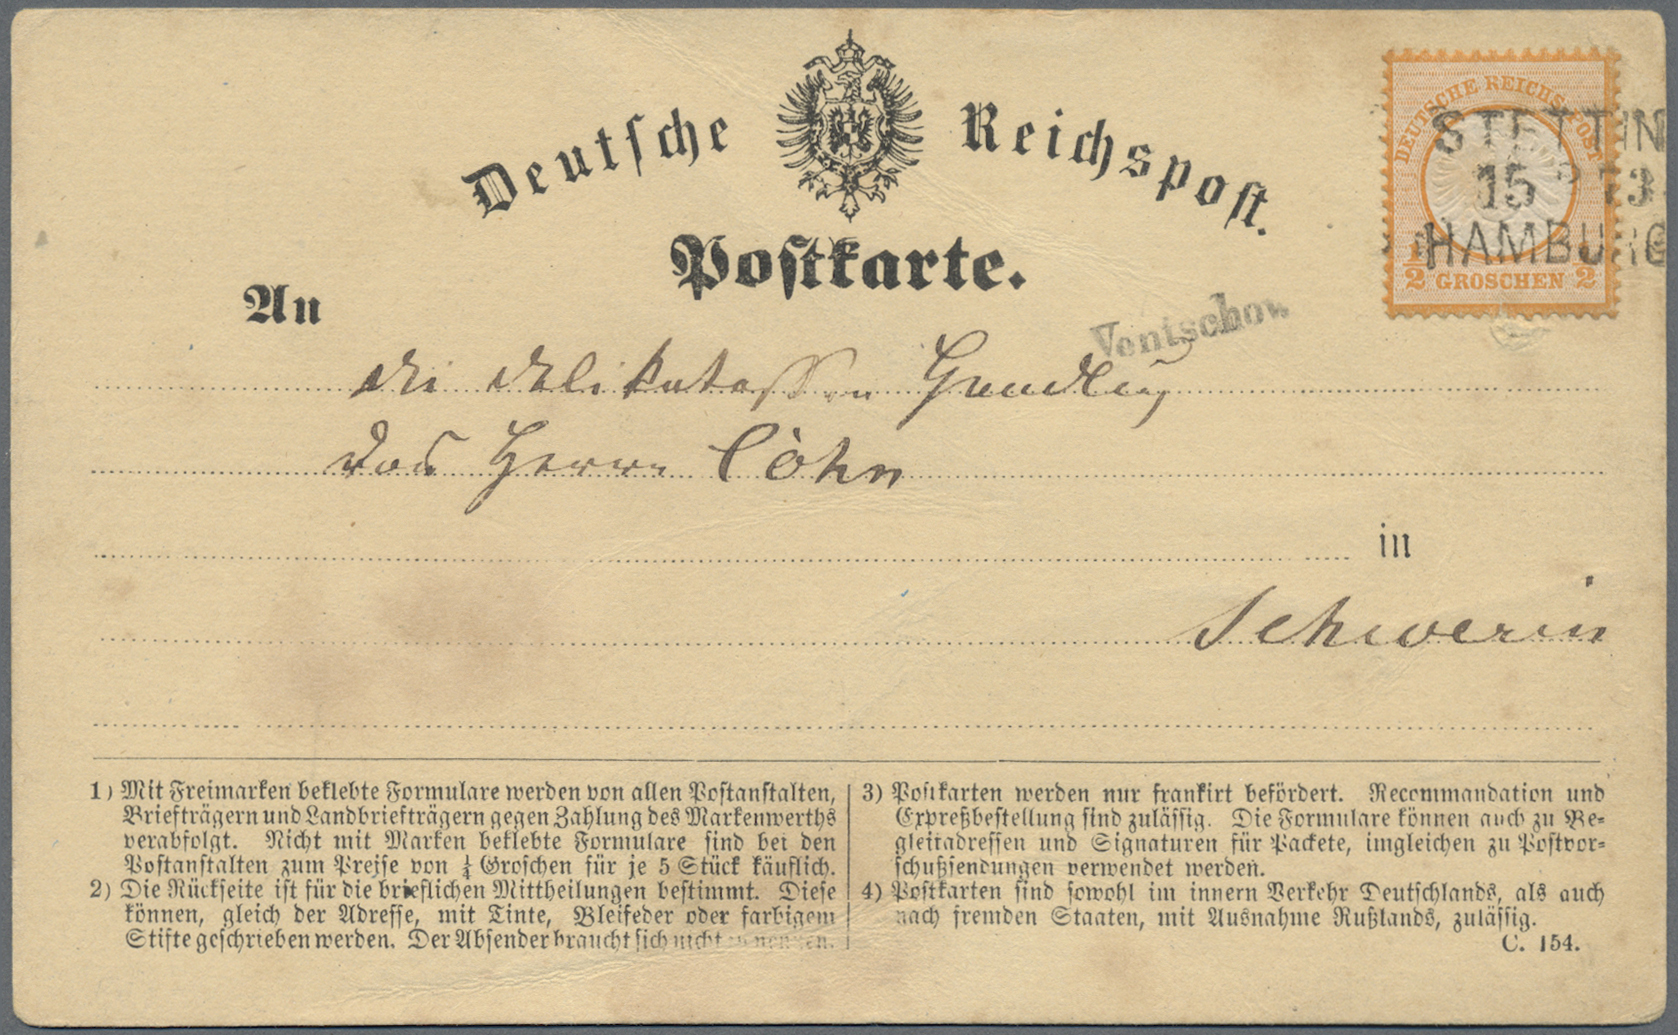 Deutsche Reichspost.
Postkarte.
DEUTSCHE REICHS-POST
1/2 GROSCHEN 2
STETTIN
15 73
HAMBURG
Ventschow
An
die delikatessen Handlung
von Herrn Cohn
in
Schwerin
1) Mit Freimarken beklebte Formulare werden von allen Postanstalten,
Briefträgern und Landbriefträgern gegen Zahlung des Markenwerths
verabfolgt. Nicht mit Marken beklebte Formulare sind bei den
Postanstalten zum Preise von ¼ Groschen für je 5 Stück käuflich.
2) Die Rückseite ist für die brieflichen Mittheilungen bestimmt. Diese
können, gleich der Adresse, mit Tinte, Bleifeder oder farbigem
Stifte geschrieben werden. Der Absender braucht sich nicht zu nennen.
3) Postkarten werden nur frankirt befördert. Recommandation und
Expreßbestellung sind zulässig. Die Formulare können auch zu Be-
gleitadressen und Signaturen für Packete, imgleichen zu Postvor-
schußsendungen verwendet werden.
4) Postkarten sind sowohl im innern Verkehr Deutschlands, als auch
nach fremden Staaten, mit Ausnahme Rußlands, zulässig.
C. 154.